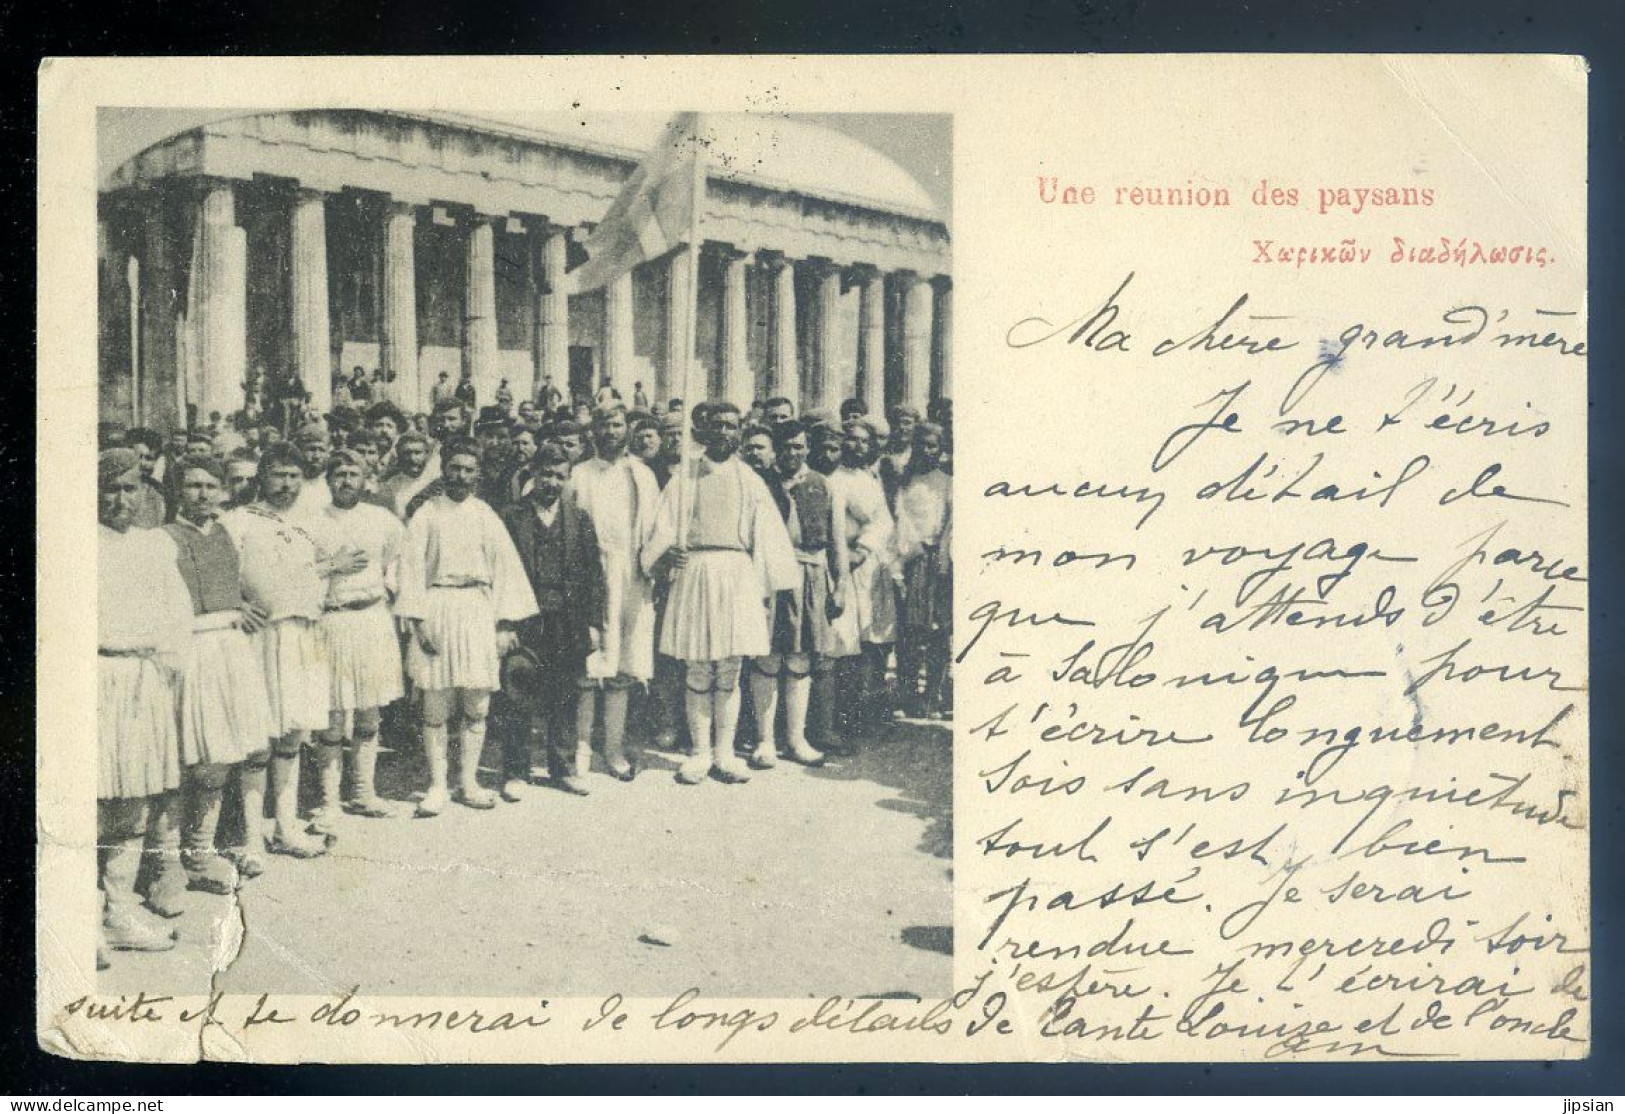 Une réunion des paysans
Χωρικῶν διαδήλωσις.
Ma chère grand'mère
Je ne t'écris
aucun détail de
mon voyage parce
que j'attends d'être
à Salonique pour
t'écrire longuement
Sois sans inquiétude
tout s'est bien
passé. Je serai
rendue mercredi soir
j'espère. Je t'écrirai de
suite et te donnerai de longs détails de tante Louise et de l'oncle
www.delcampe.net
jipsian